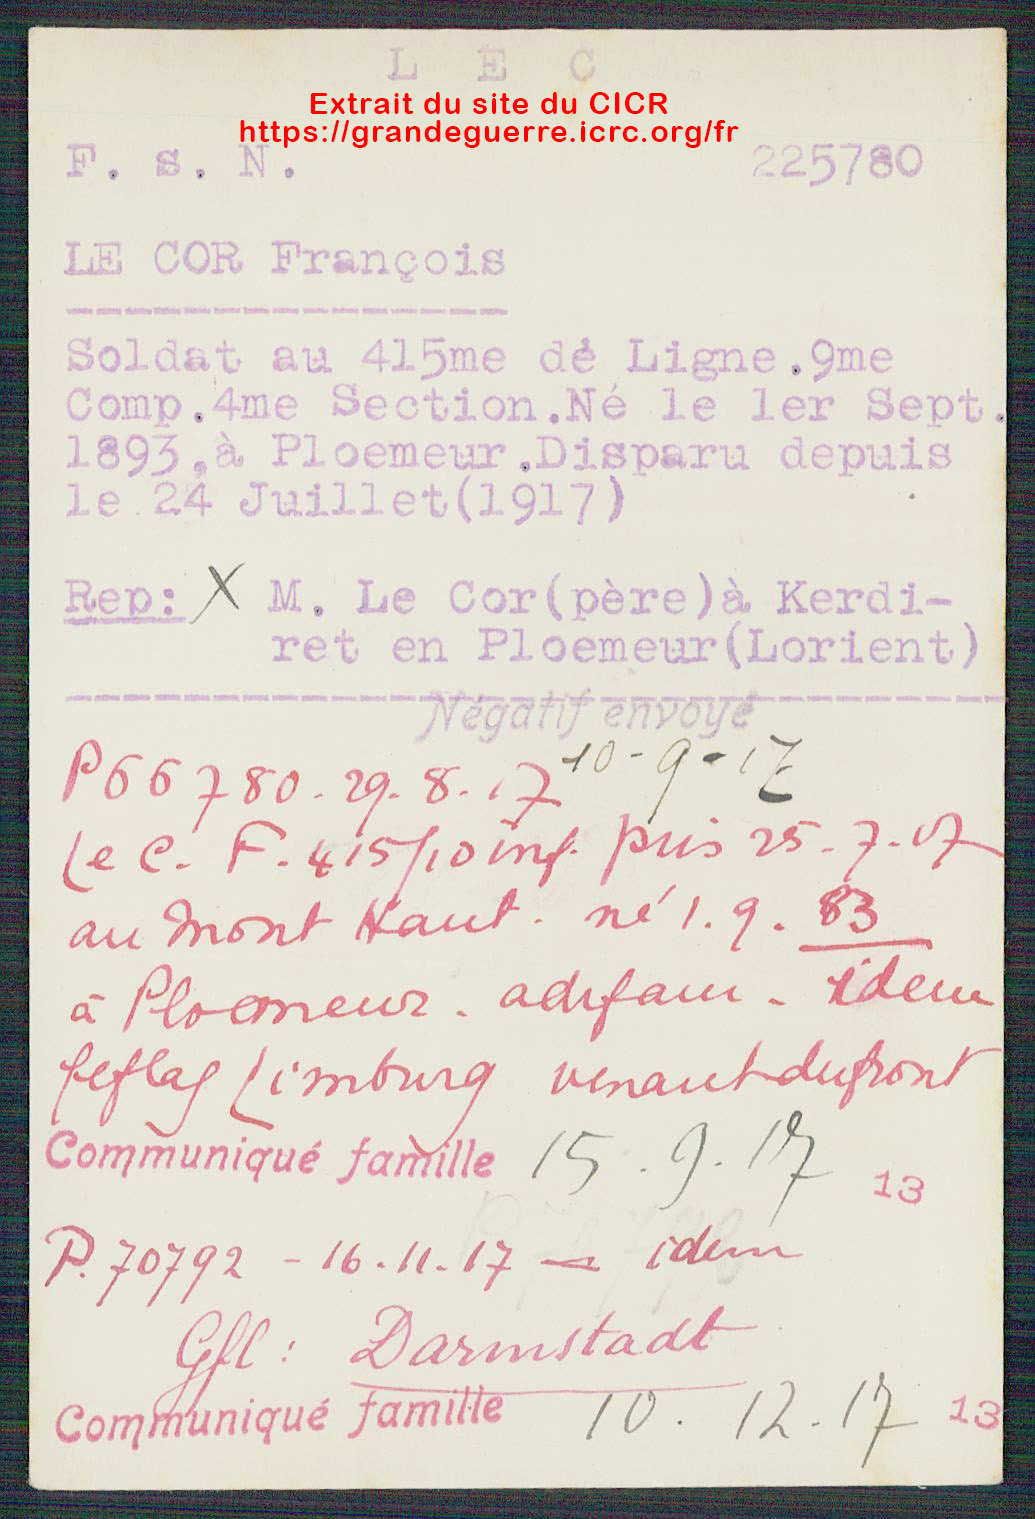 L E C
Extrait du site du CICR
https://grandeguerre.icrc.org/fr
F. s. N. 225780
LE COR François
Soldat au 415me de Ligne.9me
Comp.4me Section.Né le 1er Sept.
1893,à Ploemeur.Disparu depuis
le 24 Juillet(1917)
Rep: X M. Le Cor(père)à Kerdi-
ret en Ploemeur(Lorient)
Négatif envoyé
10-9-17
P66780. 29. 8. 17
Le C. F. 415/10 inf. pris 25-7-17
au Mont Haut. né 1. 9. 83
à Ploemeur. adr fam. idem
Gef lag Limburg venant du front
Communiqué famille 15.9.17 13
P. 70792 - 16.11.17 = idem
Gfl : Darmstadt
Communiqué famille 10. 12. 17 13